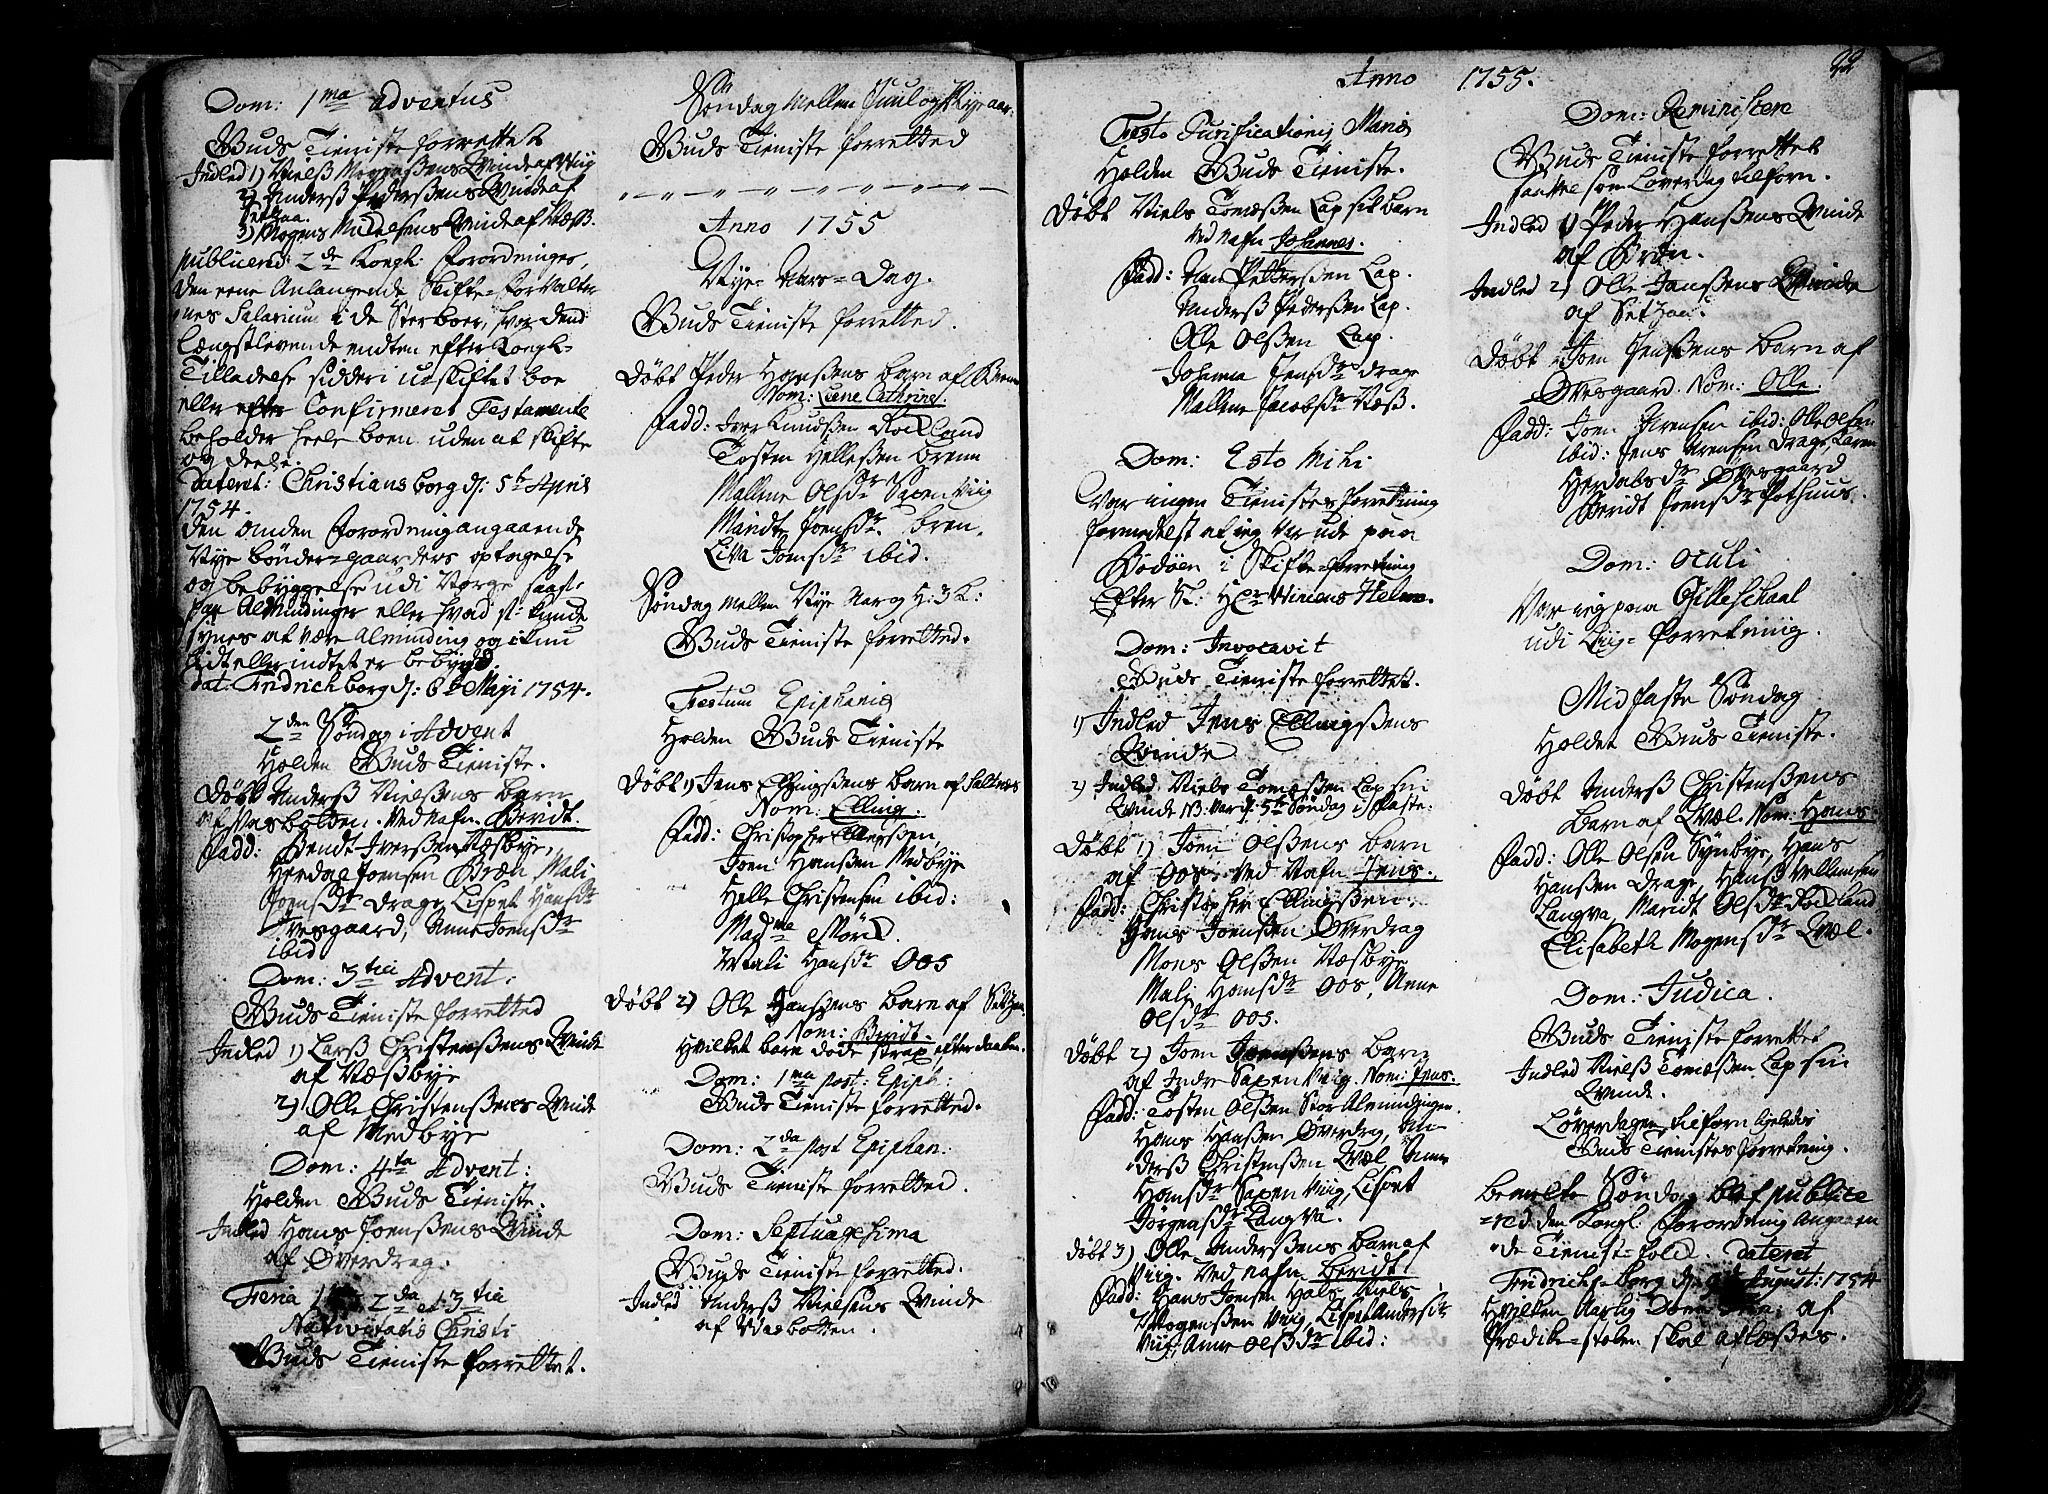 Dom: 1ma adventus
Guds Tieniste forrettet
Indled 1) Nielß Mogenßens Qvinde Wiig
2) Anderß Pederßens Qvinde af
Setzaa.
3) Mogens Qvinde af Næß.
publicered: 2de Kongl: Forordninger,
den eene Anlangende Skifte-forvalter
nes Salarium i de Sterboer, hvor dend
længstlevende endten efter Kongl-
Tilladelse sidder i uskiftet boe
eller efter Confirmeret Testamente
beholder heele boen uden at skifte
og deele.
Dateret: Christiansborg d: 5te April
1754.
Den anden Forordning angaaende
Nye bönder-gaarders optagelse
og bebyggelse udi Norge
paa Alminding eller hvad st: kunde
synes at være Alminding og nu
lidt eller intet er bebygd.
dat: Fridrichborg d: 6te Maji 1754.
2den Söndag i Advent
Holden Guds Tieniste.
Döbt Anderß Nielßens barn
af Vasbotten. Ved nafn Beridt.
Fadd: Bendt Iverßen Næsbye,
Herdal Joensen Bræn, Mali
Joensdr drage, Lispet Hansdr
Øvresgaard, Anne Joensdr
ibid
Dom: 3tia Advent:
Guds Tieniste forretted
Indled 1) Larß Christenßens Qvinde
af Næsbye
2) Olle Christenßens Qvinde
af Medbye
Dom: 4ta Advent:
Holden Guds Tieniste.
Indled Hans Joenßens Qvinde
af Øverdrag.
Feria 2da et 3tia
Nativitatis Christi
Guds Tieniste forrettet.
Söndag Mellem Juul og Nye aar:
Guds Tieniste forretted
Anno 1755
Nye-Aars-Dag.
Guds Tieniste forretted.
Döbt Peder Hanßens barn af Bræn
Nom: Lene Cathrine.
Fadd: Iver Knudßen Rocland
Tosten Helleßen bræn
Mallene Olsdr Saxenviig
Maridt Joensdr bræn.
Liva Joensdr ibid.
Söndag Mellem Nye Aar og H: 3 K:
Guds Tieniste forretted.
Festum Epiphaniæ
Holden Guds Tieniste
Döbt 1) Jens Ellingßens barn af Saltnæs
Nom: Elling.
Fadd: Christopher Ellingßen
Joen Hanßen Medbye
Helle Christensen ibid:
Madme Mörck.
Mali Hansdr Oos
Döbt 2) Olle Hanßens barn af Setzaa.
Nom: Beridt.
Hvilket barn döde strax efter daaben.
Dom: 1ma post: Epiph:
Guds Tieniste forretted.
Dom: 2da post Epiphan:
Guds Tieniste forretted.
Dom: Septuagesima
Guds Tieniste forretted.
Indled Anderß Nielsens Qvinde
af Vasbotten.
Anno 1755.
22
Festo Purificationis Mariæ
Holden Guds Tieniste.
Döbt Niels Tomæßen Lap sit barn
ved nafn Johannes.
Fadd: Petterßen Lap.
Anderß Pederßen Lap.
Ole Olßen Lap.
Johanna Jensdr drage
Mallene Jacobsdr Næß.
Dom: Esto Mihi
Var ingen Tienistes forretning
formedelst at ieg var ude paa
Bodöen i Skifte-forretning
Efter Sl: Hr Vincens Helm.
Dom: Invocavit
Guds Tieniste forrettet.
1) Indled Jens Ellingßens
Qvinde
2) Indled Niels Tomæßen Lap sin
Qvinde NB: var d: 5te Söndag i faste.
Döbt 1) Joen Olßens barn
af Oos. Ved Nafn Jens.
Fadd: Christopher Ellingßen.
Hans Joenßen Øverdrag
Mons Olßen Næsbye
Mali Hansdr Oos, Anne
Olsdr Oos.
Döbt 2) Joen Joenßens barn
af Indre Saxenviig. Nom: Jens.
Fadd: Tosten Olßen Stor Almindingen.
Hans Hanßen Øverdrag, An-
derß Christenßen Qvæl, Anne
Hansdr Saxenviig, Lispet
Jörgensdr Langva.
Döbt 3) Olle Anderßens barn af
Viig. Ved nafn Beridt.
Fadd: Hans Joensen Hals, Niels
Mogenßen Viig, Lispet Andersdr
Viig, Anne Olsdr ibid:
Dom: Reminiscere
Guds Tieniste forrettet
saavel som Löverdag tilforn.
Indled 1) Peder Hanßens Qvinde
af Bræn.
Indled 2) Olle Hanßens Qvinde
af Setzaa.
Döbt Joen Jenßens barn af
Øvresgaard. Nom: Olle.
Fadd: Joen Arensen ibid: Olle Olsen
ibid: Jens Arensen Drage, Karen
Herdalsdr Øvresgaard
Beridt Joensdr Pothuus.
Dom: Oculi
Var ieg paa Gilleschaal
udi Liig-forretning.
Midfaste Söndag
Holdet Guds Tieniste.
Döbt Anderß Christenßens
Barn af Qvæl. Nom: Hans.
Fadd: Olle Olsen Synbye, Hans
Hanßen drage, Hanß Hellensen
Langva, Maridt Olsdr Rocland,
Elisabeth Mogensdr Qvæl.
Dom: Judica.
Guds Tieniste forrettet
Indled Nielß Tomæßen Lap sin
Qvinde.
Löverdagen tilforn ligeledis
Guds Tienistes forretning.
bemelte Söndag blef publice
red den Kongl: forordning Angaaen
de Tieniste-fold. Dateret
Fridrichs-borg d: August: 1754
Hvilken Aarlig af
Prædike-stolen skal aflæßes.